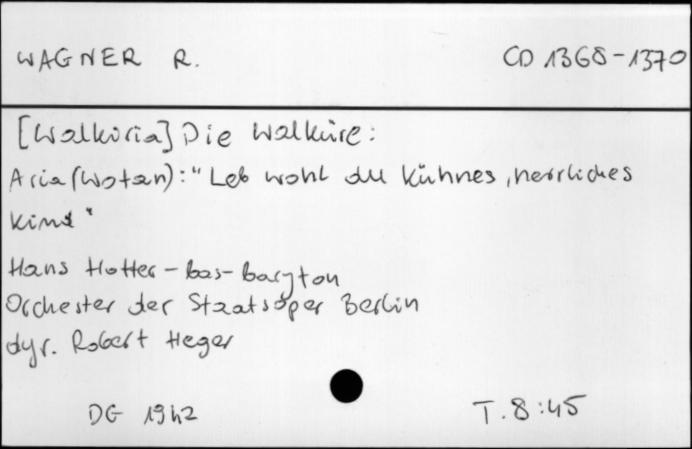 WAGNER R. CD 1368-1370
[Walkiria] Die Walküre:
Aria (Wotan): "Leb wohl du kühnes, herrliches
Kind"
Hans Hotter - bas-baryton
Orchester der Staatsoper Berlin
dyr. Robert Heger
DG 1942 T. 8:45